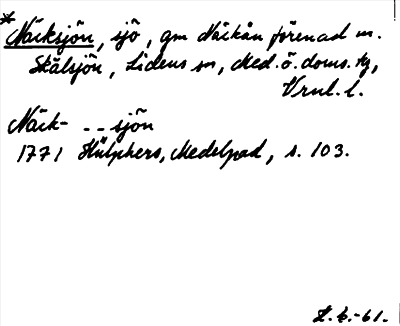 *Näcksjön, sjö, gm Näckån förenad m.
Skälsjön, Lidens sn, Med. ö. doms. tg,
Vrnl. l.
Näck- - - sjön
1771 Hülphers, Medelpad, s. 103.